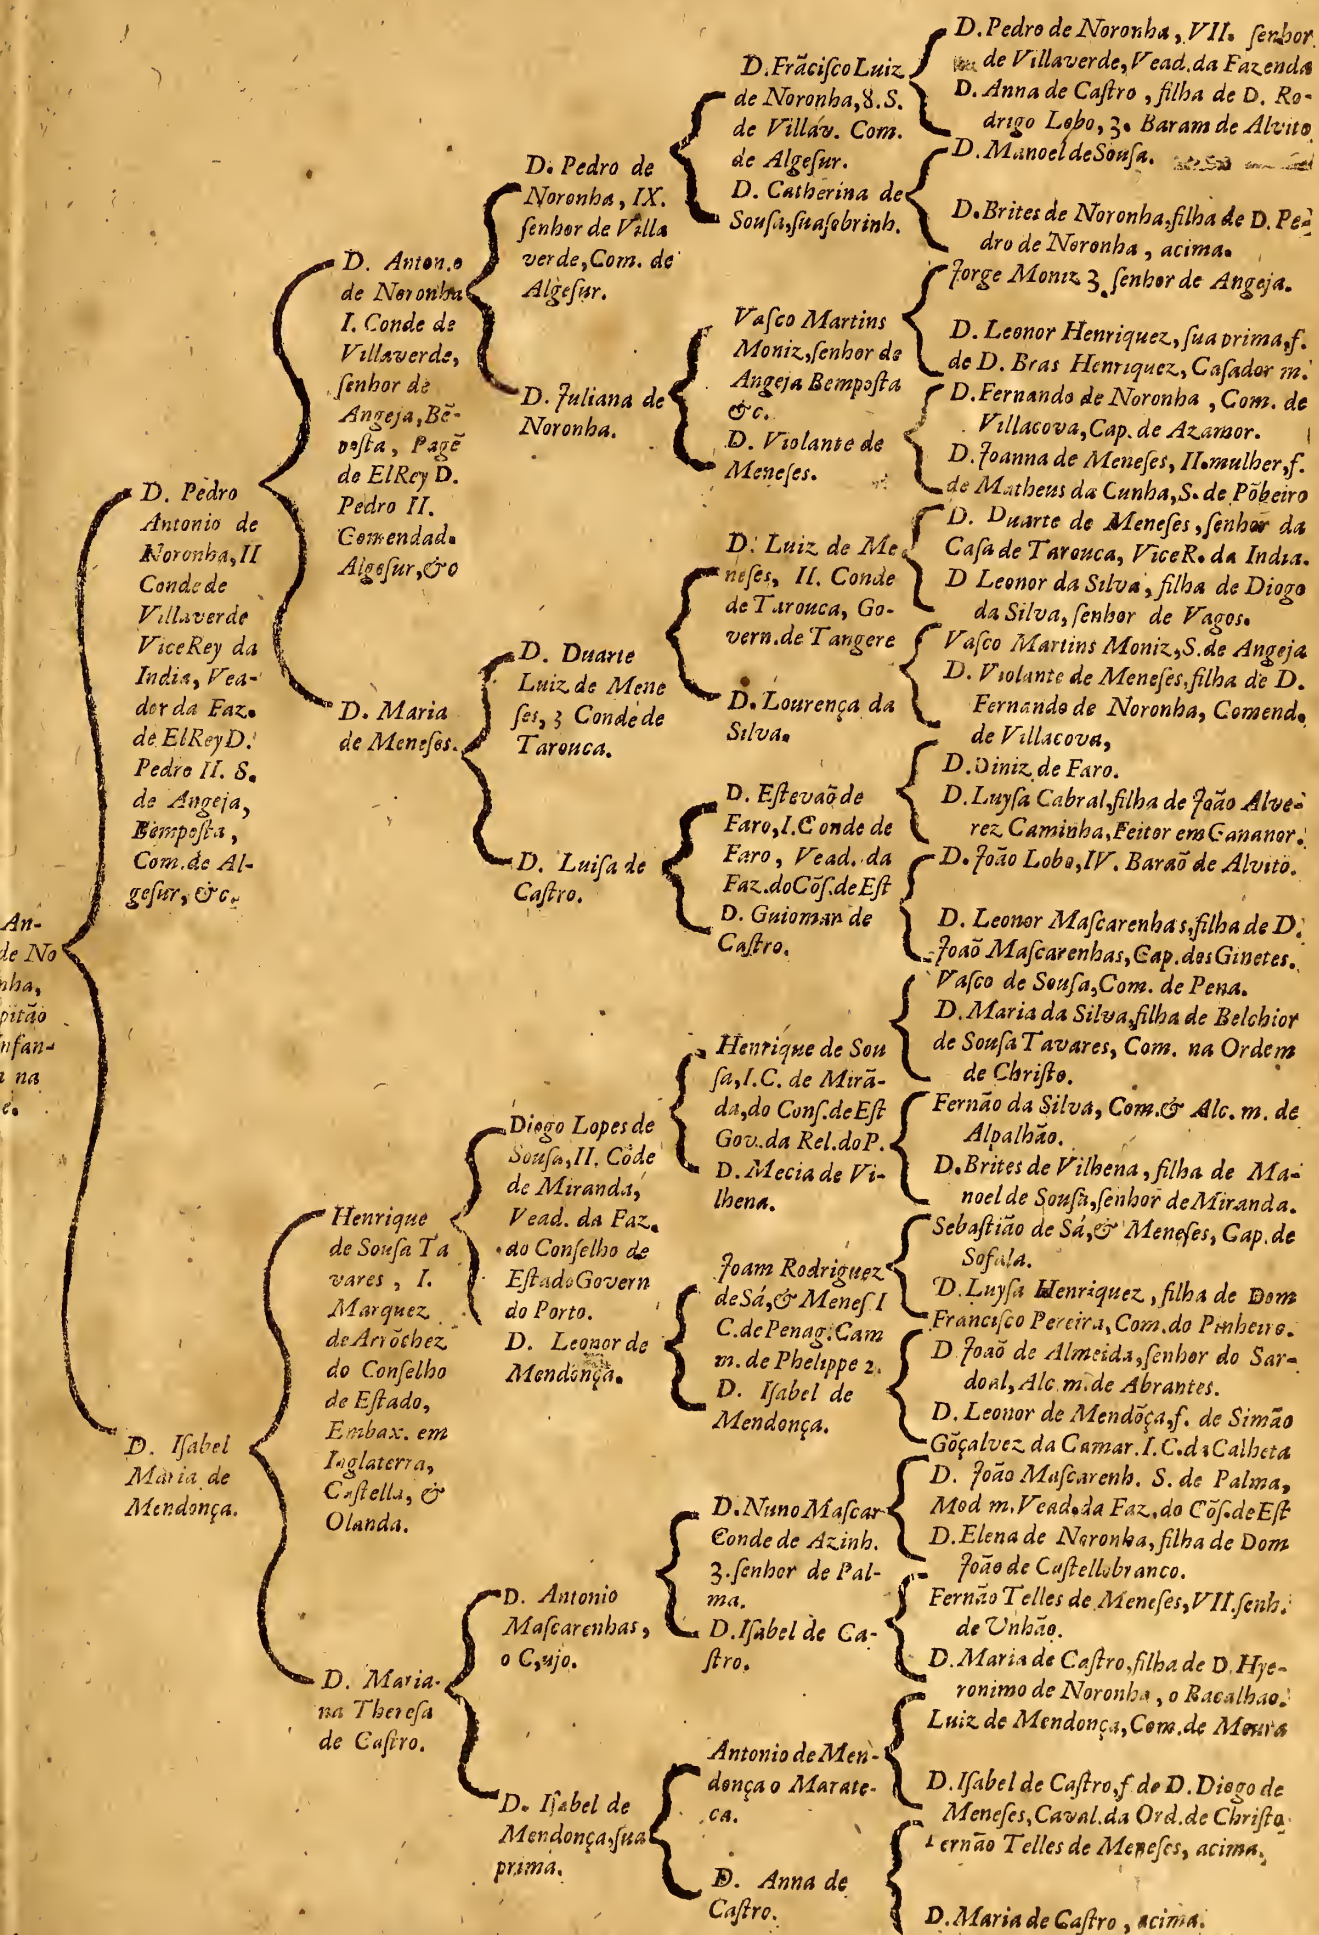 An-
de No
nha,
pitão
nfan-
a na
e.
D. Pedro
Antonio de
Noronha, II
Conde de
Villaverde
ViceRey da
India, Vea-
dor da Faz.
de ElRey D.
Pedro II. S.
de Angeja,
Bemposta,
Com. de Al-
gesur, &c.
D. Isabel
Maria de
Mendonça.
D. Anton.o
de Noronha
I. Conde de
Villaverde,
senhor de
Angeja, Bē-
posta, Pagē
de ElRey D.
Pedro II.
Comendad.
Algesur, &c
D. Maria
de Meneses.
Henrique
de Sousa Ta
vares, I.
Marquez
de Arrōchez
do Conselho
de Estado,
Embax. em
Inglaterra,
Castella, &
Olanda.
D. Maria-
na Theresa
de Castro.
D. Pedro de
Noronha, IX.
senhor de Villa
verde, Com. de
Algesur.
D. Juliana de
Noronha.
D. Duarte
Luiz de Mene
ses, 3 Conde de
Tarouca.
D. Luisa de
Castro.
Diogo Lopes de
Sousa, II. Cōde
de Miranda,
Vead. da Faz.
do Conselho de
Estado Govern
do Porto.
D. Leonor de
Mendonça.
D. Antonio
Mascarenhas,
o Cujo.
D. Isabel de
Mendonça, sua
prima.
D. Frācisco Luiz
de Noronha, 8. S.
de Villav. Com.
de Algesur.
D. Catherina de
Sousa, sua sobrinh.
Vasco Martins
Moniz, senhor de
Angeja Bemposta
&c.
D. Violante de
Meneses.
D. Luiz de Me
neses, II. Conde
de Tarouca, Go-
vern. de Tangere
D. Lourença da
Silva.
D. Estevaõ de
Faro, I. Conde de
Faro, Vead. da
Faz. do Cõs. de Est
D. Guiomar de
Castro.
Henrique de Sou
sa, I. C. de Mirā-
da, do Cons. de Est
Gov. da Rel. do P.
D. Mecia de Vi-
lhena.
Joam Rodriguez
de Sá, & Menes. I
C. de Penag. Cam
m. de Phelippe 2.
D. Isabel de
Mendonça.
D. Nuno Mascar
Conde de Azinh.
3. senhor de Pal-
ma.
D. Isabel de Ca-
stro.
Antonio de Men-
donça o Marate-
ca.
D. Anna de
Castro.
D. Pedro de Noronha, VII. senhor
de Villaverde, Vead. da Fazenda
D. Anna de Castro, filha de D. Ro-
drigo Lobo, 3. Baram de Alvito
D. Manoel de Sousa.
D. Brites de Noronha, filha de D. Pe-
dro de Noronha, acima.
Jorge Moniz 3. senhor de Angeja.
D. Leonor Henriquez, sua prima, f.
de D. Bras Henriquez, Casador m.
D. Fernando de Noronha, Com. de
Villacova, Cap. de Azamor.
D. Joanna de Meneses, II. mulher, f.
de Matheus da Cunha, S. de Põbeiro
D. Duarte de Meneses, senhor da
Casa de Tarouca, ViceR. da India.
D Leonor da Silva, filha de Diogo
da Silva, senhor de Vagos.
Vasco Martins Moniz, S. de Angeja
D. Violante de Meneses, filha de D.
Fernando de Noronha, Comend.
de Villacova,
D. Diniz de Faro.
D. Luysa Cabral, filha de João Alve-
rez Caminha, Feitor em Cananor.
D. João Lobo, IV. Baraõ de Alvito.
D. Leonor Mascarenhas, filha de D.
Joaõ Mascarenhas, Cap. dos Ginetes.
Vasco de Sousa, Com. de Pena.
D. Maria da Silva, filha de Belchior
de Sousa Tavares, Com. na Ordem
de Christo.
Fernão da Silva, Com. & Alc. m. de
Alpalhão.
D. Brites de Vilhena, filha de Ma-
noel de Sousa, senhor de Miranda.
Sebastião de Sá, & Meneses, Cap. de
Sofala.
D. Luysa Henriquez, filha de Dom
Francisco Pereira, Com. do Pinheiro.
D Joaõ de Almeida, senhor do Sar-
doal, Alc. m. de Abrantes.
D. Leonor de Mendõça, f. de Simão
Gõçalvez da Camar. I. C. da Calheta
D. João Mascarenh. S. de Palma,
Mod m. Vead. da Faz. do Cõs. de Est
D. Elena de Noronha, filha de Dom
João de Castellobranco.
Fernão Telles de Meneses, VII. senh.
de Unhão.
D. Maria de Castro, filha de D. Hye-
ronimo de Noronha, o Bacalhao.
Luiz de Mendonça, Com. de Moura
D. Isabel de Castro, f de D. Diogo de
Meneses, Caval. da Ord. de Christo
Fernão Telles de Meneses, acima.
D. Maria de Castro, acima.